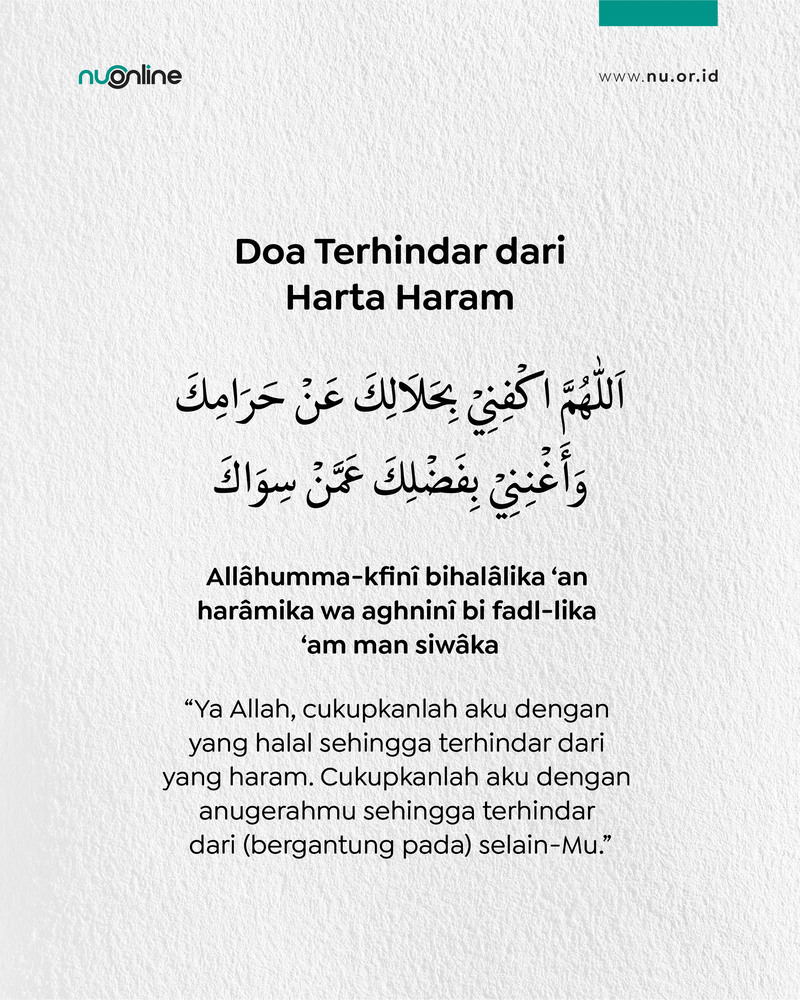 nuonline
www.nu.or.id
Doa Terhindar dari
Harta Haram
اَللّٰهُمَّ اكْفِنِيْ بِحَلَالِكَ عَنْ حَرَامِكَ
وَأَغْنِنِيْ بِفَضْلِكَ عَمَّنْ سِوَاكَ
Allâhumma-kfinî bihalâlika ‘an
harâmika wa aghninî bi fadl-lika
‘am man siwâka
“Ya Allah, cukupkanlah aku dengan
yang halal sehingga terhindar dari
yang haram. Cukupkanlah aku dengan
anugerahmu sehingga terhindar
dari (bergantung pada) selain-Mu.”